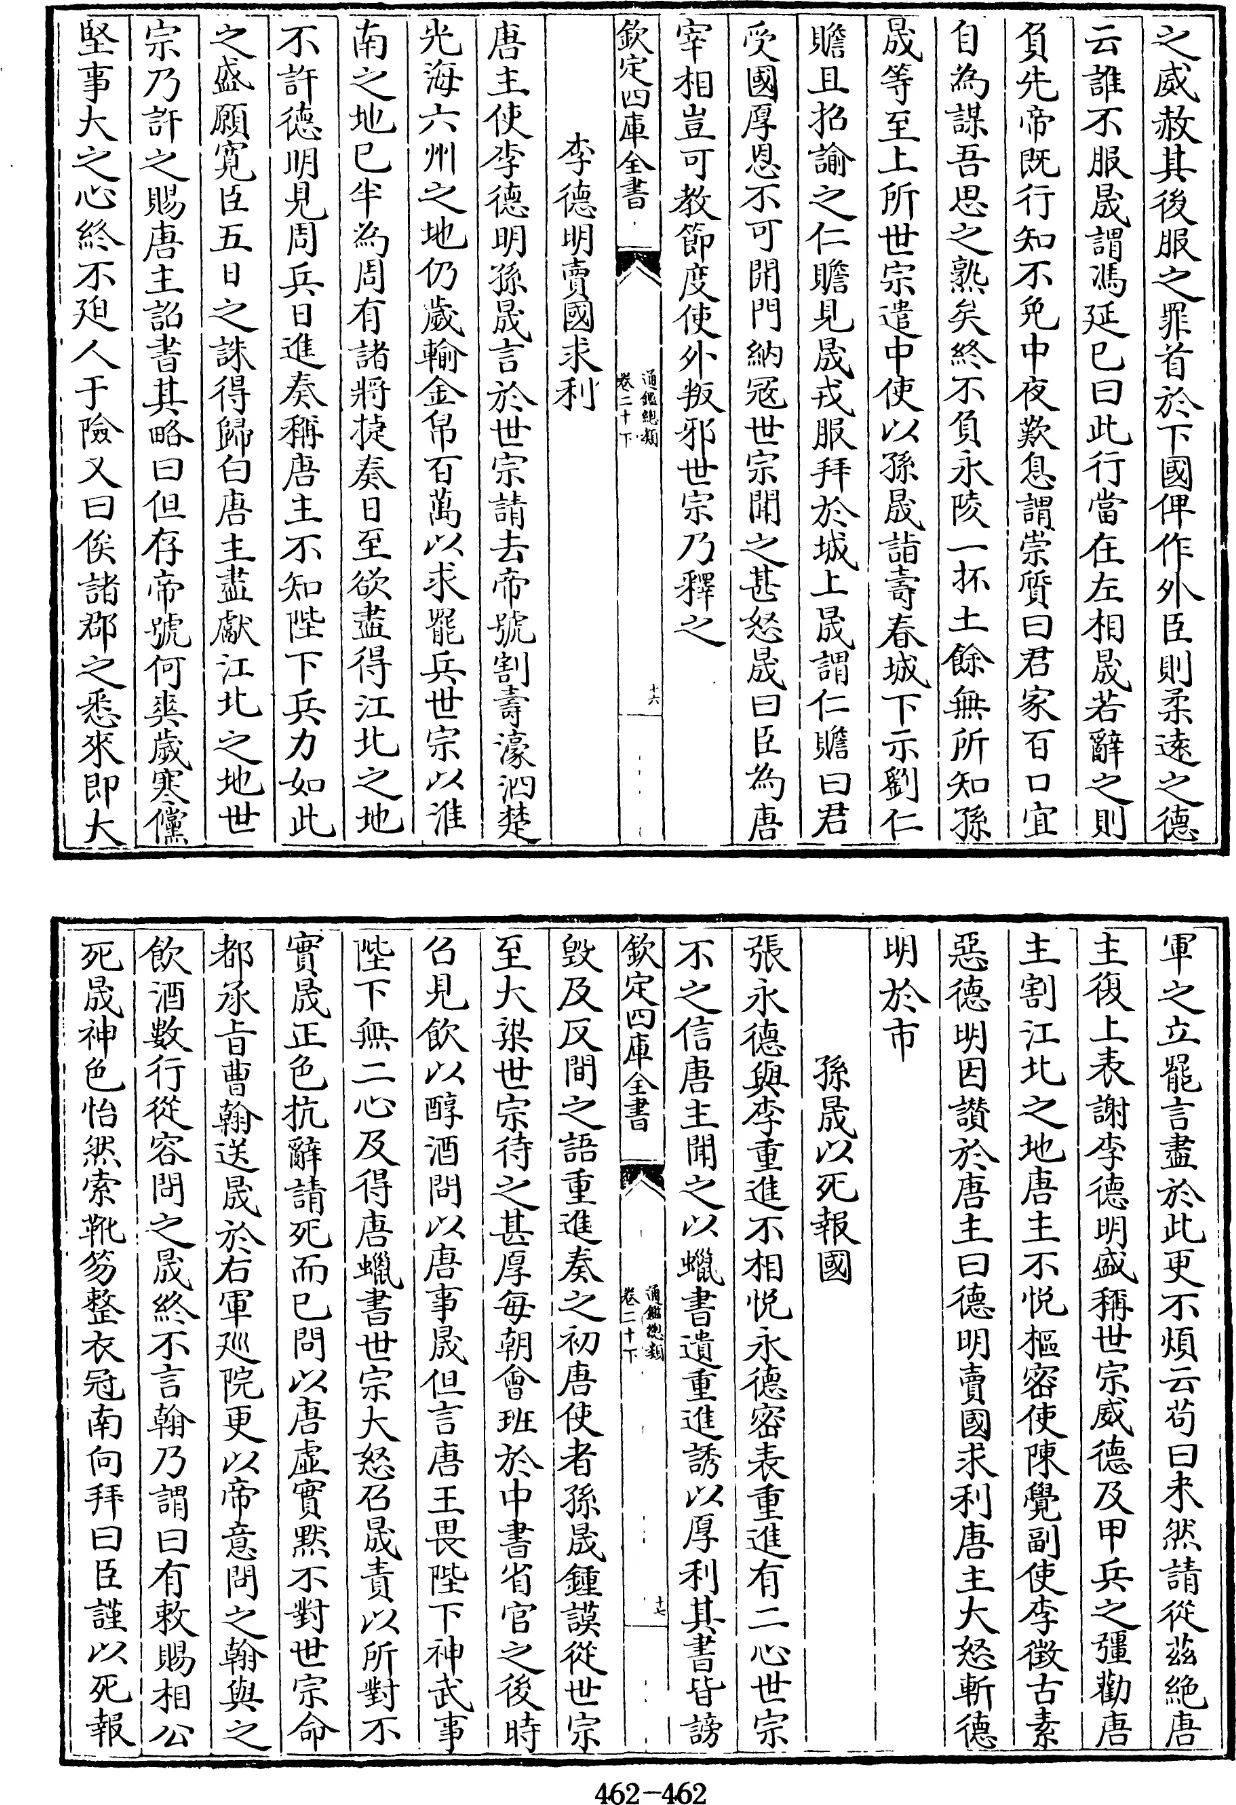 之威赦其後服之罪首於下國俾作外臣則柔遠之德
云誰不服晟謂馮延巳曰此行當在左相晟若辭之則
負先帝既行知不免中夜歎息謂崇質曰君家百口宜
自為謀吾思之熟矣終不負永陵一抔土餘無所知孫
晟等至上所世宗遣中使以孫晟詣壽春城下示劉仁
贍且招諭之仁贍見晟戎服拜於城上晟謂仁贍曰君
受國厚恩不可開門納寇世宗聞之甚怒晟曰臣為唐
宰相豈可教節度使外叛邪世宗乃釋之
欽定四庫全書
通鑑總類
卷二十下
十六
李德明賣國求利
唐主使李德明孫晟言於世宗請去帝號割壽濠泗楚
光海六州之地仍歲輸金帛百萬以求罷兵世宗以淮
南之地已半為周有諸將捷奏日至欲盡得江北之地
不許德明見周兵日進奏稱唐主不知陛下兵力如此
之盛願寬臣五日之誅得歸白唐主盡獻江北之地世
宗乃許之賜唐主詔書其略曰但存帝號何爽歲寒儻
堅事大之心終不廹人于險又曰俟諸郡之悉來即大
軍之立罷言盡於此更不煩云苟曰未然請從茲絶唐
主復上表謝李德明盛稱世宗威德及甲兵之彊勸唐
主割江北之地唐主不悅樞密使陳覺副使李徵古素
惡德明因讚於唐主曰德明賣國求利唐主大怒斬德
明於市
孫晟以死報國
張永德與李重進不相悅永德密表重進有二心世宗
不之信唐主聞之以蠟書遺重進誘以厚利其書皆謗
欽定四庫全書
通鑑總類
卷二十下
十七
毀及反間之語重進奏之初唐使者孫晟鍾謨從世宗
至大梁世宗待之甚厚每朝會班於中書省官之後時
召見飲以醇酒問以唐事晟但言唐王畏陛下神武事
陛下無二心及得唐蠟書世宗大怒召晟責以所對不
實晟正色抗辭請死而已問以唐虛實黙不對世宗命
都承旨曹翰送晟於右軍廵院更以帝意問之翰與之
飲酒數行從容問之晟終不言翰乃謂曰有敕賜相公
死晟神色怡然索靴笏整衣冠南向拜曰臣謹以死報
462-462